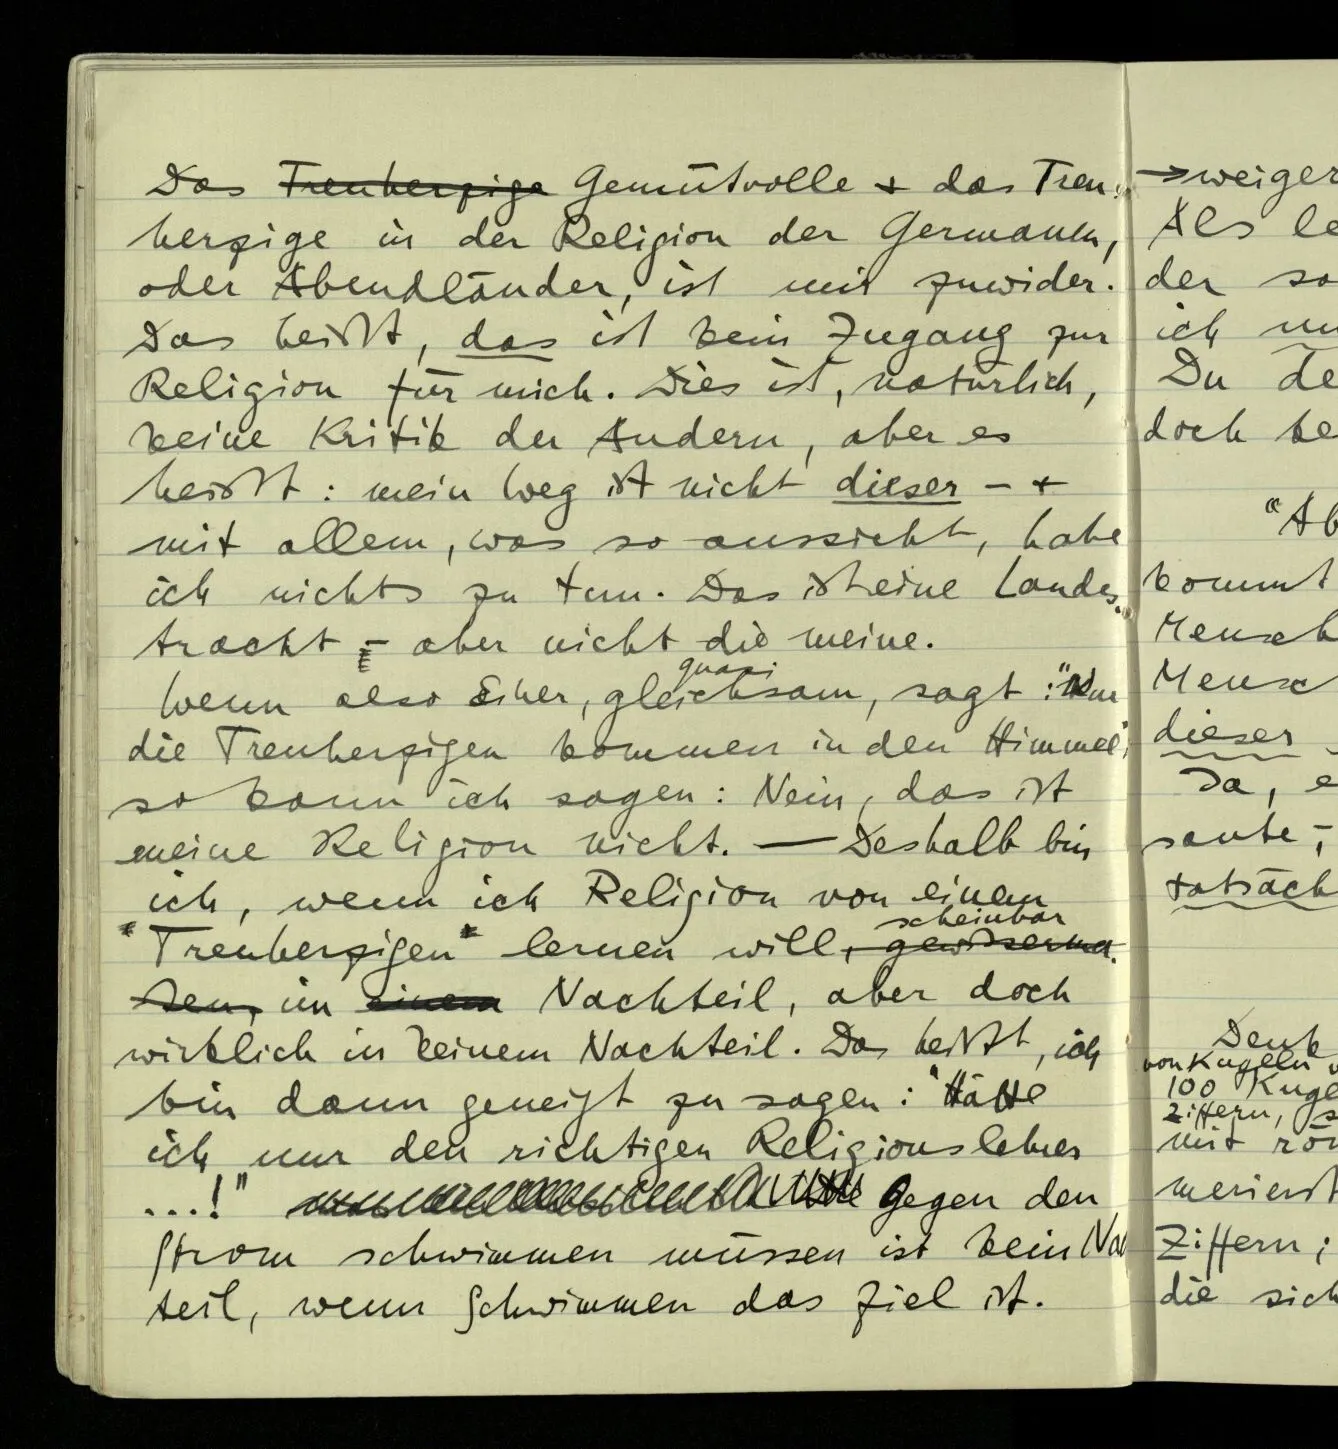 Das Treuherzige Gemütvolle + das Treu-
herzige in der Religion der Germanen,
oder Abendländer, ist mir zuwider.
Das heißt, das ist kein Zugang zur
Religion für mich. Dies ist, natürlich,
keine Kritik der Andern, aber es
heißt: mein Weg ist nicht dieser – +
mit allem, was so aussieht, habe
ich nichts zu tun. Das ist eine Landes-
tracht – aber nicht die meine.
quasi
Wenn also Einer, gleichsam, sagt: "Nur
die Treuherzigen kommen in den Himmel",
so kann ich sagen: Nein, das ist
meine Religion nicht. — Deshalb bin
ich, wenn ich Religion von einem
scheinbar
"Treuherzigen" lernen will, gewisserma-
ssen, im einem Nachteil, aber doch
wirklich in keinem Nachteil. Das heißt, ich
bin dann geneigt zu sagen: "Hätte
ich nur den richtigen Religionslehrer
...!" Gegen den
Strom schwimmen müssen ist kein Na
teil, wenn Schwimmen das Ziel ist.
→weiger
Als le
der so
ich
Du de
doch ke
"Ab
kommt
Mensch
Mensc
dieser
Ja, e
sante,
tatsäch
Denk
von Kugeln v
100 Kuge
Ziffern, s
mit röm
merierst
Ziffern;
die sich